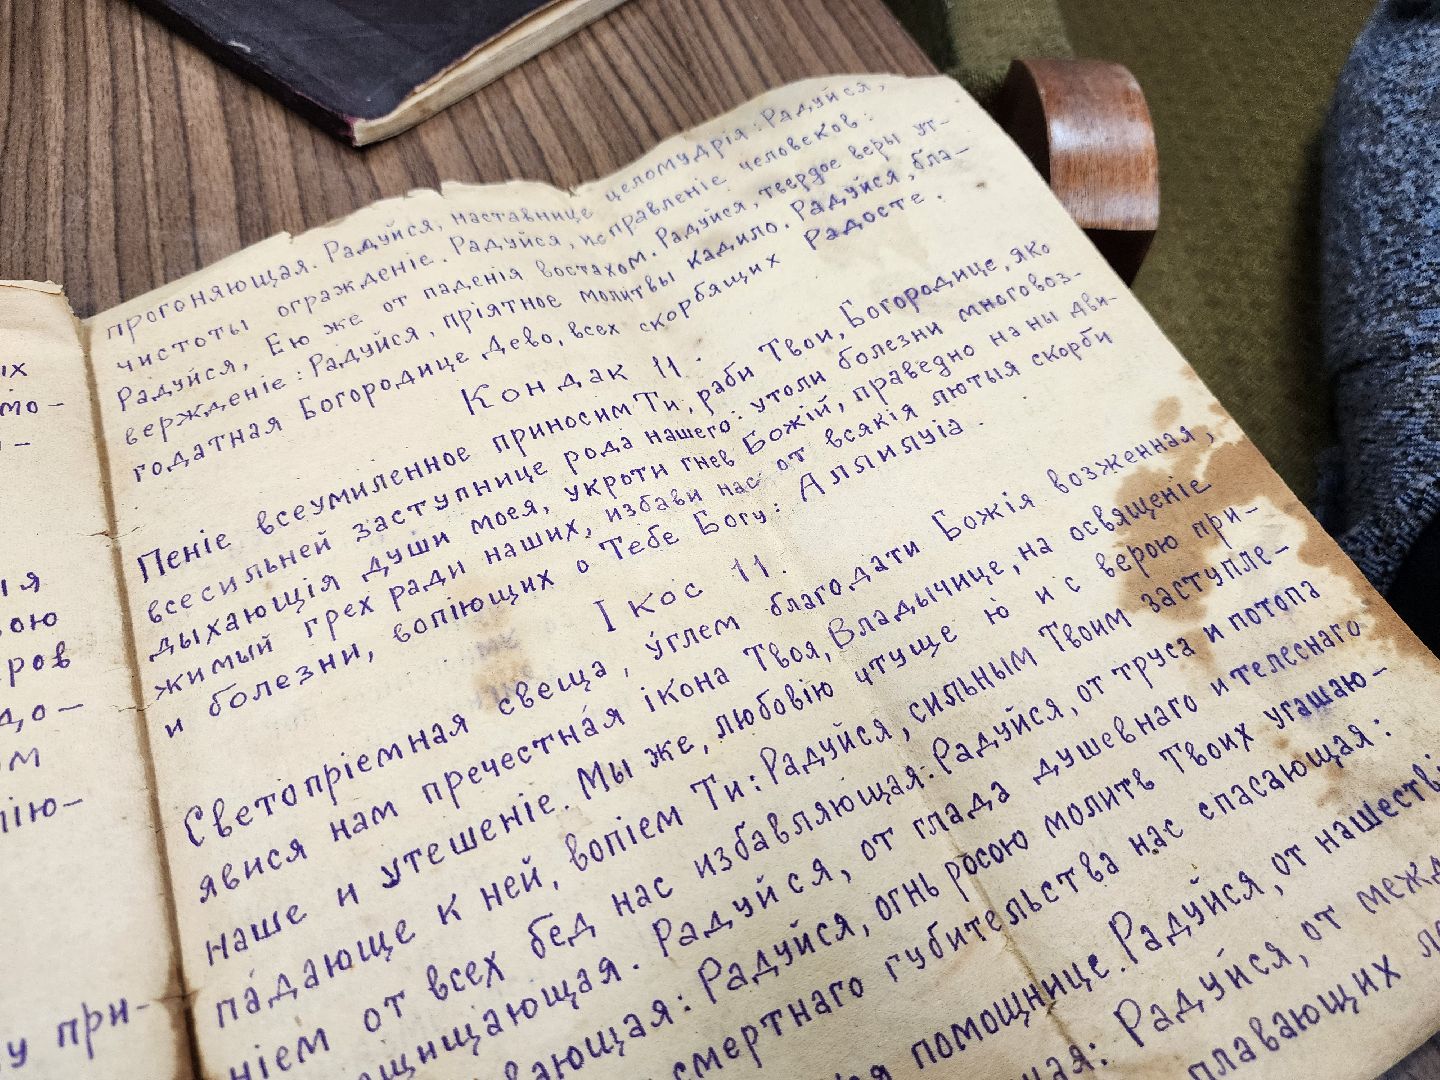 ых
мо-
-
ія
вою
ров
до-
ом
пію-
у при-
прогоняющая. Радуйся, наставнице целомудрія: Радуйся,
чистоты огражденіе. Радуйся, исправленіе человеков:
Радуйся, Ею же от паденія востахом. Радуйся, твердое веры ут-
вержденіе: Радуйся, пріятное молитвы кадило. Радуйся, бла-
годатная Богородице Дево, всех скорбящих Радосте.
Кондак 11.
Пеніе всеумиленное приносим Ти, раби Твои, Богородице, яко
всесильней заступнице рода нашего: утоли болезни многовоз-
дыхающія души моея, укроти гнев Божій, праведно на ны дви-
жимый грех ради наших, избави нас от всякія лютыя скорби
и болезни, вопіющих о Тебе Богу: Аллилуіа.
Ікос 11.
Светопріемная свеща, у́глем благодати Божія возженная,
явися нам пречестна́я ікона Твоя, Владычице, на освященіе
наше и утешеніе. Мы же, любовію чтуще ю́ и с верою при-
па́дающе к ней, вопіем Ти: Радуйся, сильным Твоим заступле-
нієм от всех бед нас избавляющая: Радуйся, от труса и потопа
щищающая. Радуйся, от глада душевнаго и телеснаго
вающая: Радуйся, огнь росою молитв Твоих угашаю-
смертнаго губительства нас спасающая:
помощнице. Радуйся, от нашестві
ная: Радуйся, от межд
плавающих